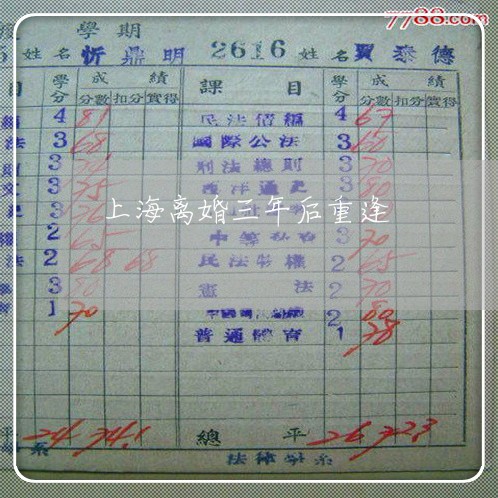 7788.com
學期
姓名 忻鼎明 2616 姓名 賈泰德
目 學分 成績 課目 學分 成績
分數 扣分 實得 分數 扣分 實得
4 81 民法債編 4 67
法 3 68 國際公法 3 60
3 刑法總則 3 70
文 3 75 西洋通史 3 80
3 76 3
上海离婚三年后重逢
權 2 65 3 70
法 2 68 68 民法物權 2 65
3 80 憲法 2 70
1 70 2 80
普通體育 1 78
平 24 74.1 總平 26 72.3
系 法律學系